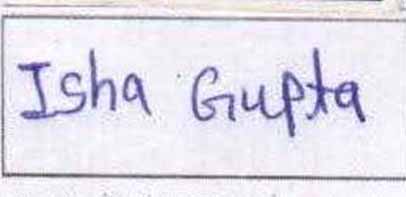 Isha Gupta